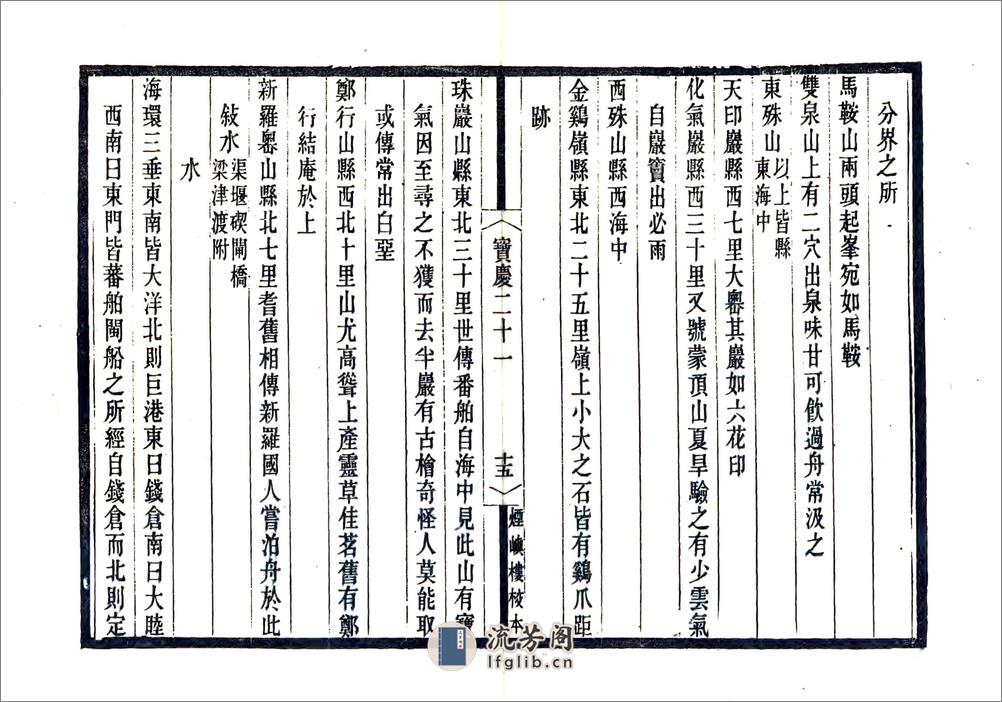 分界之所
馬鞍山兩頭起峯宛如馬鞍
雙泉山上有二穴出泉味甘可飲過舟常汲之
東殊山以上皆縣
東海中
天印巖縣西七里大嶴其巖如六花印
化氣巖縣西三十里又號蒙頂山夏旱驗之有少雲氣
自巖竇出必雨
西殊山縣西海中
金鷄嶺縣東北二十五里嶺上小大之石皆有鷄爪距
跡
寶慶二十一
十五
煙嶼樓校本
珠巖山縣東北三十里世傳番舶自海中見此山有寶
氣因至尋之不獲而去半巖有古檜奇怪人莫能取
或傳常出白堊
鄭行山縣西北十里山尤高聳上產靈草佳茗舊有鄭
行結庵於上
新羅嶴山縣北七里耆舊相傳新羅國人嘗泊舟於此
敍水渠堰碶閘橋
梁津渡附
水
海環三垂東南皆大洋北則巨港東曰錢倉南曰大睦
西南曰東門皆蕃舶閩船之所經自錢倉而北則定
流芳阁
lfglib.cn